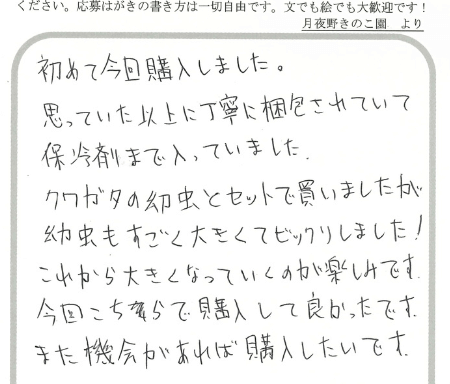 ください。応募はがきの書き方は一切自由です。文でも絵でも大歓迎です！
月夜野きのこ園　より
初めて今回購入しました。
思っていた以上に丁寧に梱包されていて
保冷剤まで入っていました.
クワガタの幼虫とセットで買いましたが
幼虫もすごく大きくてビックリしました!
これから大きくなっていくのが楽しみです.
今回こちらで購入して良かったです.
また機会があれば購入したいです.